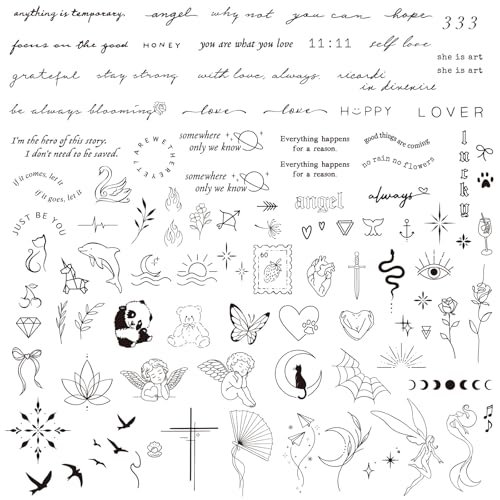 anything is temporary.
angel
why not
you can
hope
333
focus on the good
HONEY
you are what you love
11:11
self love
she is art
she is art
grateful
stay strong
with love, always.
ricordi
in divenire
be always blooming
love
love
HAPPY
LOVER
I'm the hero of this story.
I don't need to be saved.
ARE WE THERE YET
somewhere
only we know
Everything happens
for a reason.
good things are coming
no rain no flowers
lucky
if it comes, let it
if it goes, let it
somewhere
only we know
Everything happens
for a reason.
angel
always
JUST BE YOU
60